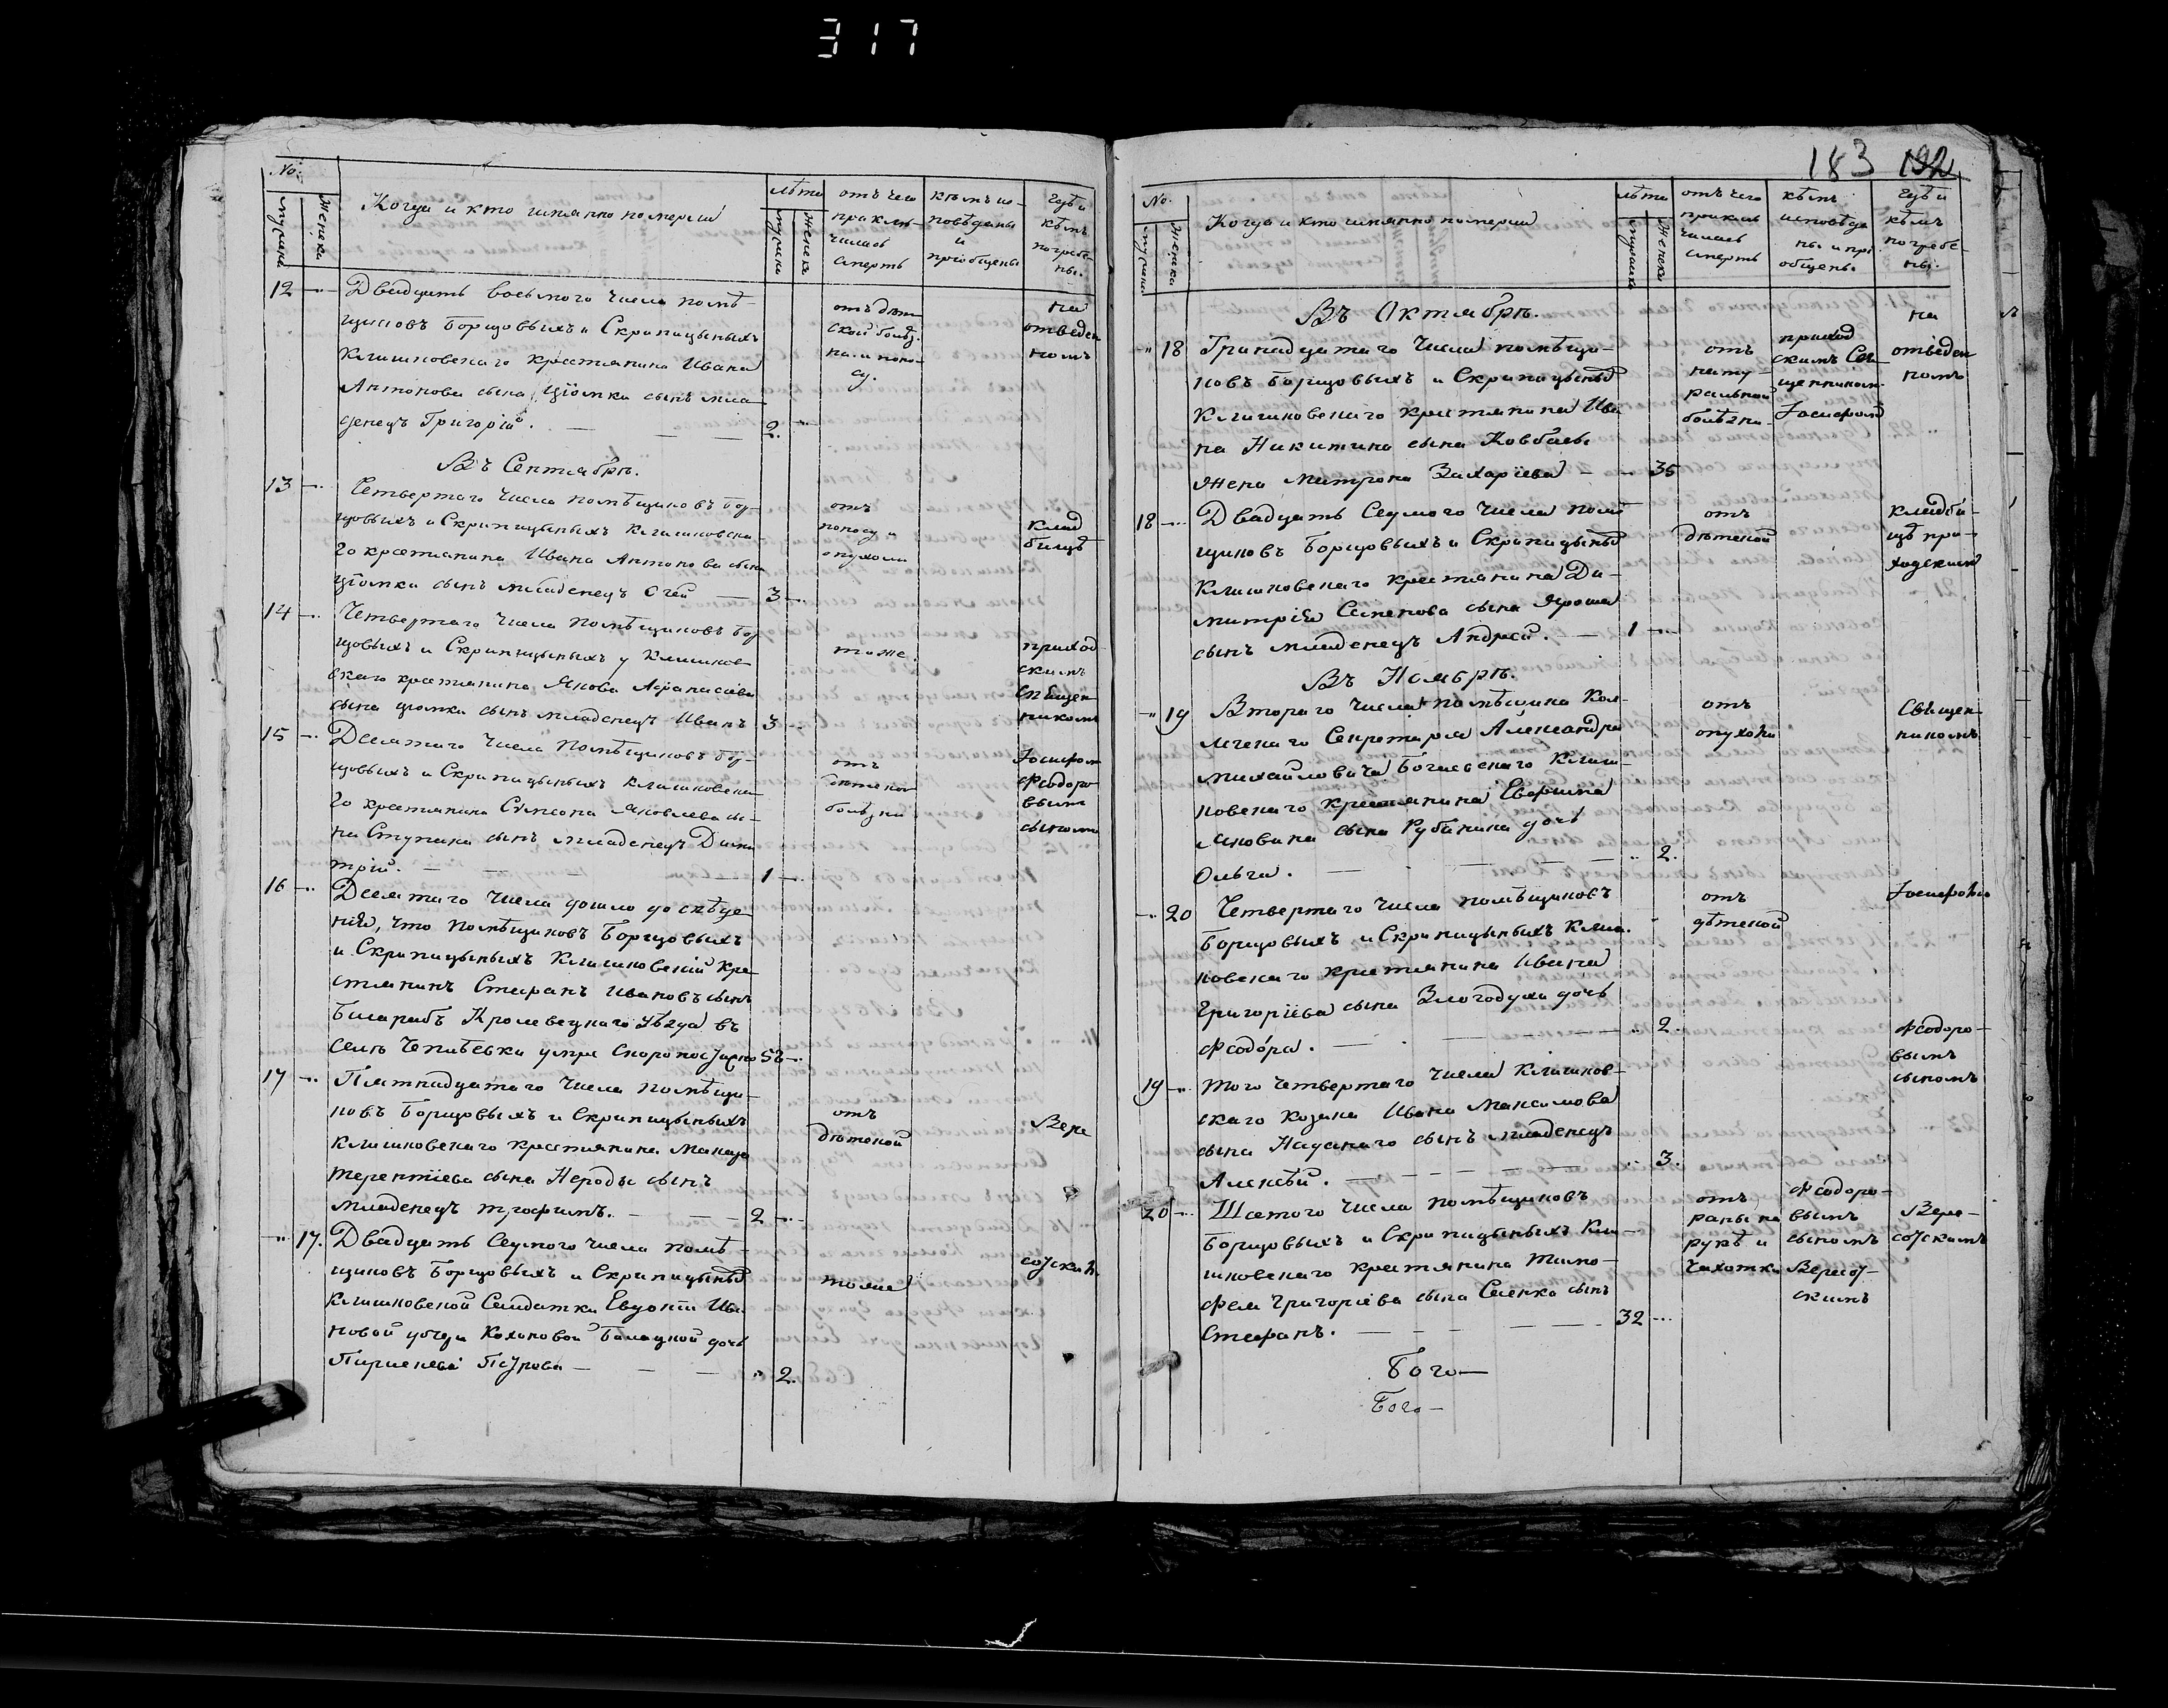 317
183 192
No.
мужеска
женска
Когда и кто имянно померли
лѣта
мужеска
женска
отъ чего
приклю-
чилась
смерть
кѣмъ ис-
повѣданы
и
пріобщены
гдѣ и
кѣмъ
погребе-
ны.
12
Двадцать восьмого числа помѣ-
щиковъ Борщовыхъ и Скрипицыныхъ
Клишковского крестьянина Ивана
Антонова сына Цiомки сынъ мла
денецъ Григорій. — — — 2.
отъ дѣт
ской болѣз.
ни и поно-
су.
на
отведен
номъ
Въ Сентябрѣ.
13
Четвертаго числа помѣщиковъ Бор-
щовыхъ и Скрипицыныхъ Клишковска-
го крестьянина Ивана Антонова сына
Цiомки сынъ младенецъ — 3
отъ
поносу и
опухоли
клад
бищѣ
14
Четвертаго числа помѣщиковъ Бор-
щовыхъ и Скрипицыныхъ у Клишков-
скаго крестьянина Якова Афанасіева
сына Цiомки сынъ младенецъ Иванъ 3
тоже.
приход
скимъ
Священ
никомъ
15
Десятаго числа помѣщиковъ Бор-
щовыхъ и Скрипицыныхъ Клишковска-
го крестьянина Симеона Яковлева сы-
на Ступака сынъ младенецъ Дими
трій. — — — 1
отъ
дѣтской
болѣзни
Іосифом
Феодоро
вым
сыномъ
16
Десятаго числа дошло до свѣде-
нія, что помѣщиковъ Борщовыхъ
и Скрипицыныхъ Клишковскій кре-
стянинъ Стефанъ Ивановъ сынъ
Кролевецкаго уѣзда въ
селѣ умре скоропостижно 52
17
Пятнадцатаго числа помѣщи-
ковъ Борщовыхъ и Скрипицыныхъ
Клишковского крестьянина
Терентіева сына Нероды сынъ
младенецъ Трофимъ. — — 2
отъ
дѣтской
Вере
17.
Двадцать седмого числа помѣ-
щиковъ Борщовыхъ и Скрипицыныхъ
Клишковской Солдатки Евдокіи Ива
новой дочь
Петрова — — — 2.
тоже
сотским
No.
мужеска
женска
Когда и кто имянно померли
лѣта
мужеска
женска
отъ чего
приклю
чилась
смерть
кѣмъ
исповѣда
ны и прі
общены
гдѣ и
кѣмъ
погребе-
ны.
Въ Октябрѣ.
18
Тринадцатаго числа помѣщи-
ковъ Борщовыхъ и Скрипицыныхъ
Клишковского крестьянина Ива
на Никитина сына Ковбасы
жена Матрона Захаріева — 35
отъ
нату-
ральной
болѣзни
приход
скимъ Свя
щенником
Іосифомъ
на
отведен
номъ
18
Двадцать седмого числа помѣ
щиковъ Борщовыхъ и Скрипицыныхъ
Клишковского крестьянина Ди-
митрія Семенова сына Яроша
сынъ младенецъ Андрей. — 1
отъ
дѣтской
кладби-
щѣ при-
ходскимъ
Въ Ноябрѣ.
19
Втораго числа помѣщика Кол-
лежскаго Секретаря Александра
Михайловича Богаевскаго Клиш-
ковского крестьянина Евфима
Яковина сына Рубаника дочь
Ольга. — — — 2.
отъ
опухоли
Священ
никомъ
20
Четвертаго числа помѣщиковъ
Борщовыхъ и Скрипицыныхъ Клиш.
ковского крестьянина Ивана
Григоріева сына Злогодуха дочь
Феодора. — — — 2.
отъ
дѣтской
Іосифомъ
Феодоро-
вымъ
сыномъ
19
Того четвертаго числа Клишков-
скаго козака Ивана Максимова
сына сынъ младенецъ
Алексѣй. — — — 3.
20
Шестого числа помѣщиковъ
Борщовыхъ и Скрипицыныхъ Кли-
шковского крестьянина Тимо-
фея Григоріева сына Сененко сынъ
Стефанъ. — — — 32
отъ
раны на
рукѣ и
чахотки
Феодоро-
вымъ
сыномъ
Вересот-
скимъ
Вере-
сотскимъ
Бого—
Бого—